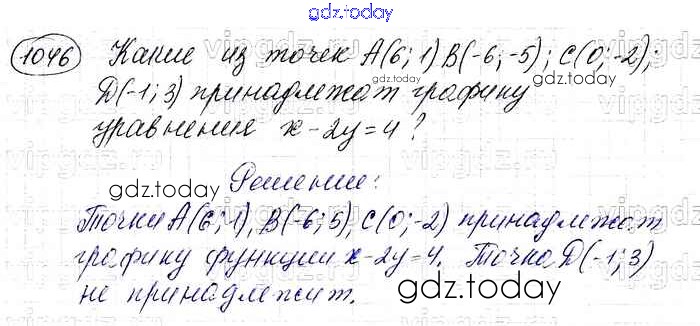 gdz.today
1046 Какие из точек А(6; 1) В(-6; -5); С(0; -2);
gdz.today
D(-1; 3) принадлежат графику
gdz.today
уравнения x-2y=4?
gdz.today
Решение:
gdz.today
Точки А(6; 1), В(-6; 5), С(0; -2) принадлежат
графику функции x-2y=4. Точка D(-1; 3)
не принадлежит.
gdz.today
gdz.today